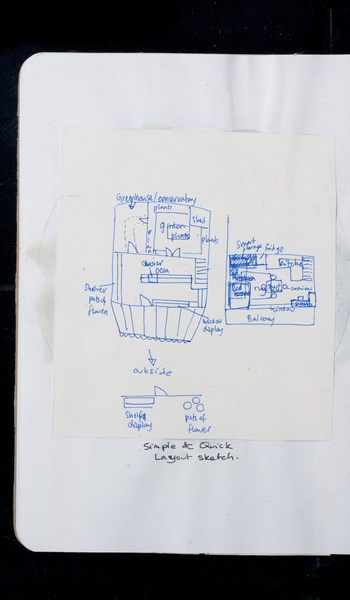 Greenhouse/conservatory
plants
garden
plants
Shed
plants
desk
Shelves
pots of
flower
window
display
outside
Shelfs
display
pots of
flower
Smart
storage fridge
kitchen
rug
window
Balcony
Simple & Quick
Layout sketch.